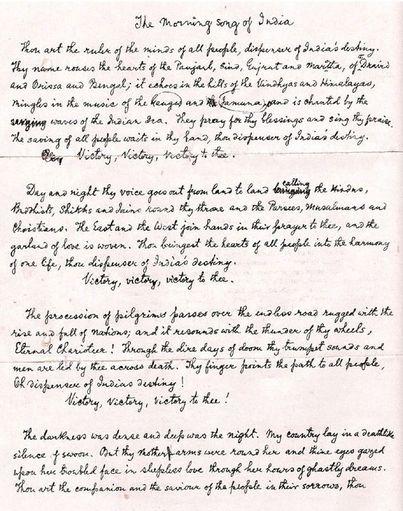 The Morning Song of India
Thou art the ruler of the minds of all people, dispenser of India's destiny.
Thy name rouses the hearts of the Panjab, Sind, Gujrat and Maratha, of Dravid
and Orissa and Bengal; it echoes in the hills of the Vindhyas and Himalayas,
mingles in the music of the Ganges and the Jamuna, and is chanted by the
waves of the Indian Sea. They pray for thy blessings and sing thy praise,
the saving of all people waits in thy hand, thou dispenser of India's destiny.
Victory, Victory, Victory to thee.
Day and night thy voice goes out from land to land calling the Hindus,
Buddhists, Sikhs and Jains round thy throne and the Parsees, Musulmans and
Christians. The East and the West join hands in their prayer to thee, and the
garland of love is woven. Thou bringest the hearts of all people into the harmony
of one life, thou dispenser of India's destiny.
Victory, victory, victory to thee.
The procession of pilgrims passes over the endless road rugged with the
rise and fall of nations; and it resounds with the thunder of thy wheels,
Eternal Charioteer! Through the dire days of doom thy trumpet sounds and
men are led by thee across death. Thy finger points the path to all people,
Oh dispenser of India's destiny!
Victory, Victory, Victory to thee!
The darkness was dense and deep was the night. My country lay in a deathlike
silence of swoon. But thy mother arms were round her and thine eyes gazed
upon her troubled face in sleepless love through her hours of ghastly dreams.
Thou art the companion and the saviour of the people in their sorrows, thou